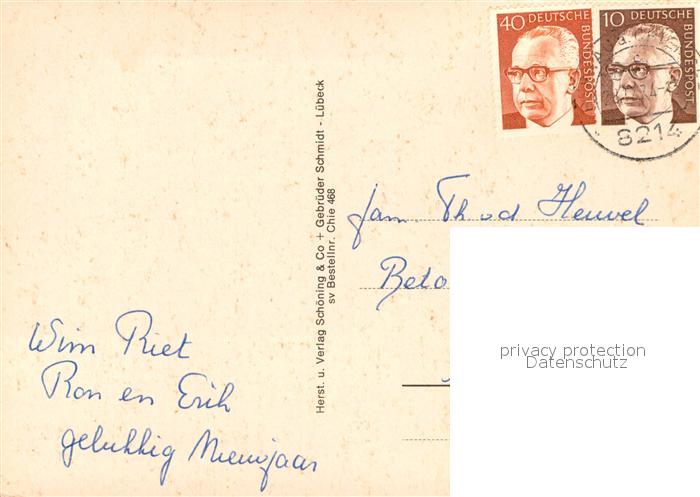 40 DEUTSCHE BUNDESPOST
10 DEUTSCHE BUNDESPOST
8214
Herst. u. Verlag Schöning & Co + Gebrüder Schmidt - Lübeck
sv Bestellnr. Chie 468
fam. Th. v d Heuvel
Beto
privacy protection
Datenschutz
Wim Riet
Ron en Erik
gelukkig Nieuwjaar